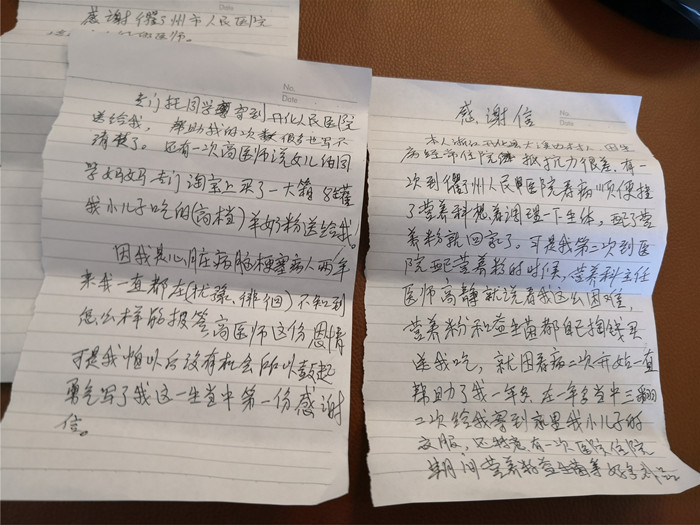 感谢衢州市人民医院
医师。
No.
Date
专门托同学寄到开化人民医院
送给我，帮助我的次数很多也写不
清楚了。还有一次高医师说女儿的同
学妈妈专门淘宝上买了一大箱8罐
我小儿子吃的(高档)羊奶粉送给我！
因我是心脏病脑梗塞病人两年
来我一直都在(犹豫、徘徊)不知到
怎么样的报答高医师这份恩情
可是我怕以后没有机会所以鼓起
勇气写了我这一生当中第一份感谢
信。
感谢信
No.
Date
本人浙江开化 因生
病经常住院 抵抗力很差，有一
次到衢州人民医院看病顺便挂
了营养科想着调理一下身体，配了营
养粉就回家了，可是我第二次到医
院配营养粉的时候，营养科主任
医师高静就说看我这么困难，
营养粉和益生菌都自己掏钱买
送我吃，就因看病二次开始一直
帮助了我一年多，在一年多当中三翻
二次给我寄到家里我小儿子的
衣服，还特意有一次医院住院
期间营养粉益生菌等好多